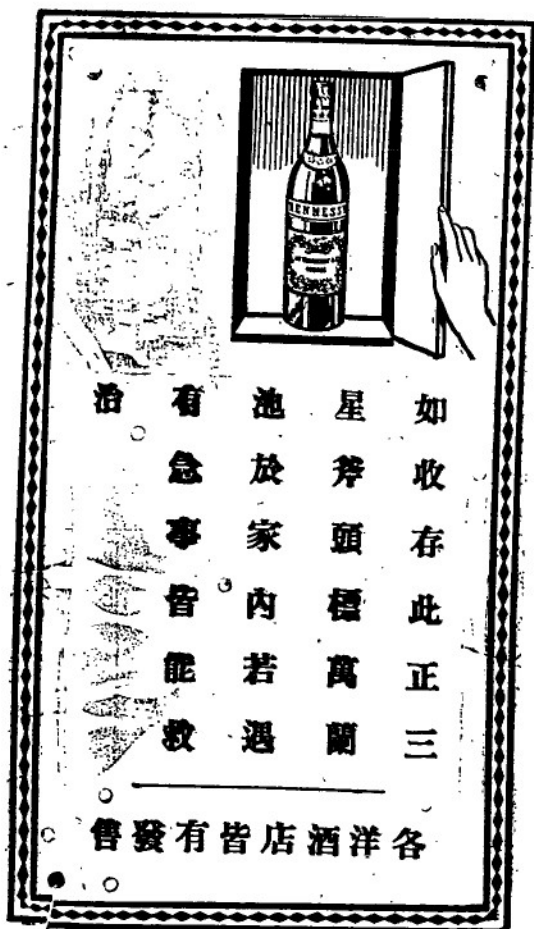 HENNESSY
如收存此正三
星斧頭標萬蘭
池於家內若遇
有急事皆能救
治
各洋酒店皆有發售